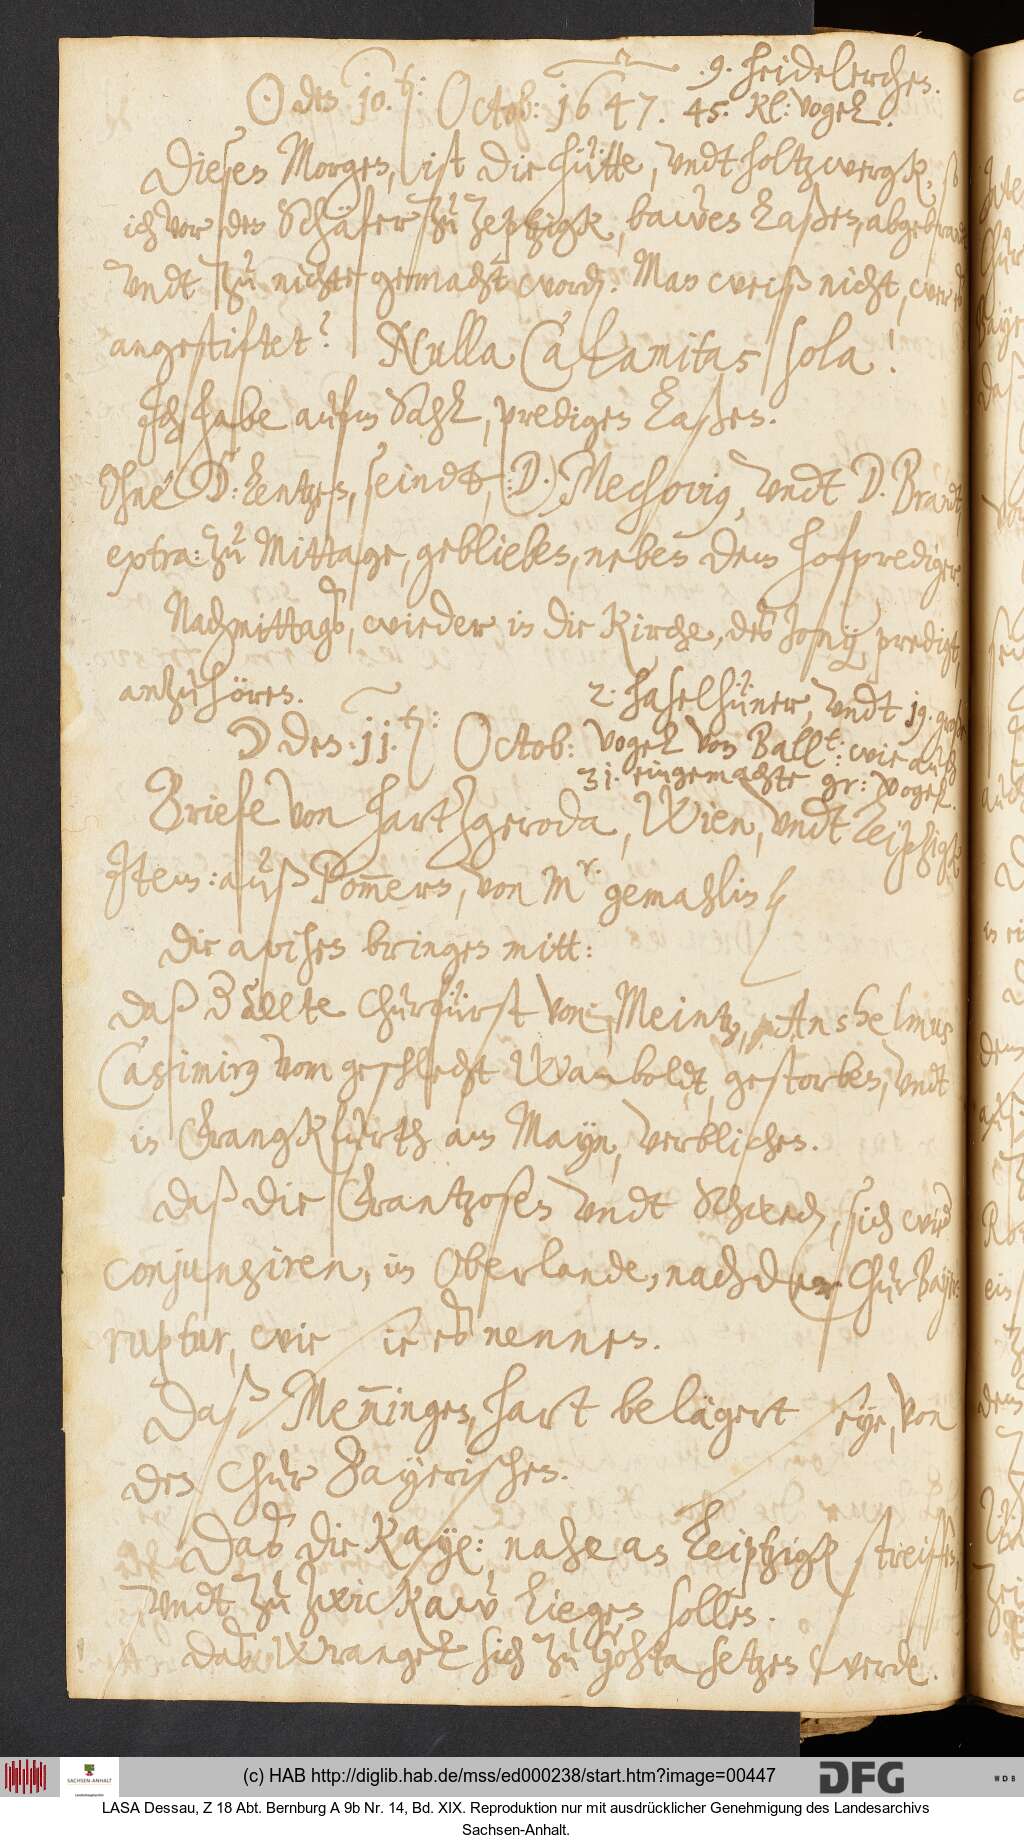 ☉ den 10.den: Octob: 1647.
9. heidelerchen.
45. kl: Vogel.
Dieses Morgens, ist die hütte, undt holtzwergk, so
ich vor den Schäfer zu Zeptzigk, bawen laßen, abgebrandt
undt zu nichte gemacht worden. Man weiß nicht, wer es
angestiftet? Nulla Calamitas sola!
Ich habe aufm Sahl, predigen laßen.
Ohne D: Lentzen, seindt, D. Mechovius, undt D. Brandt
extra: zu Mittage, geblieben, neben dem hofprediger.
Nachmittags, wieder in die Kirche, des Jonij predigt,
anzuhören.
2. haselhüner, undt 19. große
☽ den: 11.ten: Octob: Vogel von Ball.t: wie auch
31. eingemachte gr: Vogel.
Briefe von hartzgeroda, Wien, undt Leiptzigk
Item: auß Pom̅ern, von Mr. gemahlin
Die avisen bringen mitt:
Daß der allte Churfürst von Meintz, Anshelmus
Casimirus vom geschlecht Wamboldt, gestorben, undt
in Franckfurth am Mayn, verblichen.
Daß die Frantzosen undt Schweden, sich wieder
conjungiren, im Oberlande, nach der ChurBayer:
ruptur, wie sie es nennen.
Daß Mem̅ingen, hart belägert seye, von
den ChurBayerischen.
Das die Kayserl: nahe an Leiptzigk streiffen,
undt zu Zwickaw liegen sollen.
Das Wrangel sich zu Höxta setzen werde.
(c) HAB http://diglib.hab.de/mss/ed000238/start.htm?image=00447
SACHSEN-ANHALT
DFG
WDB
LASA Dessau, Z 18 Abt. Bernburg A 9b Nr. 14, Bd. XIX. Reproduktion nur mit ausdrücklicher Genehmigung des Landesarchivs
Sachsen-Anhalt.